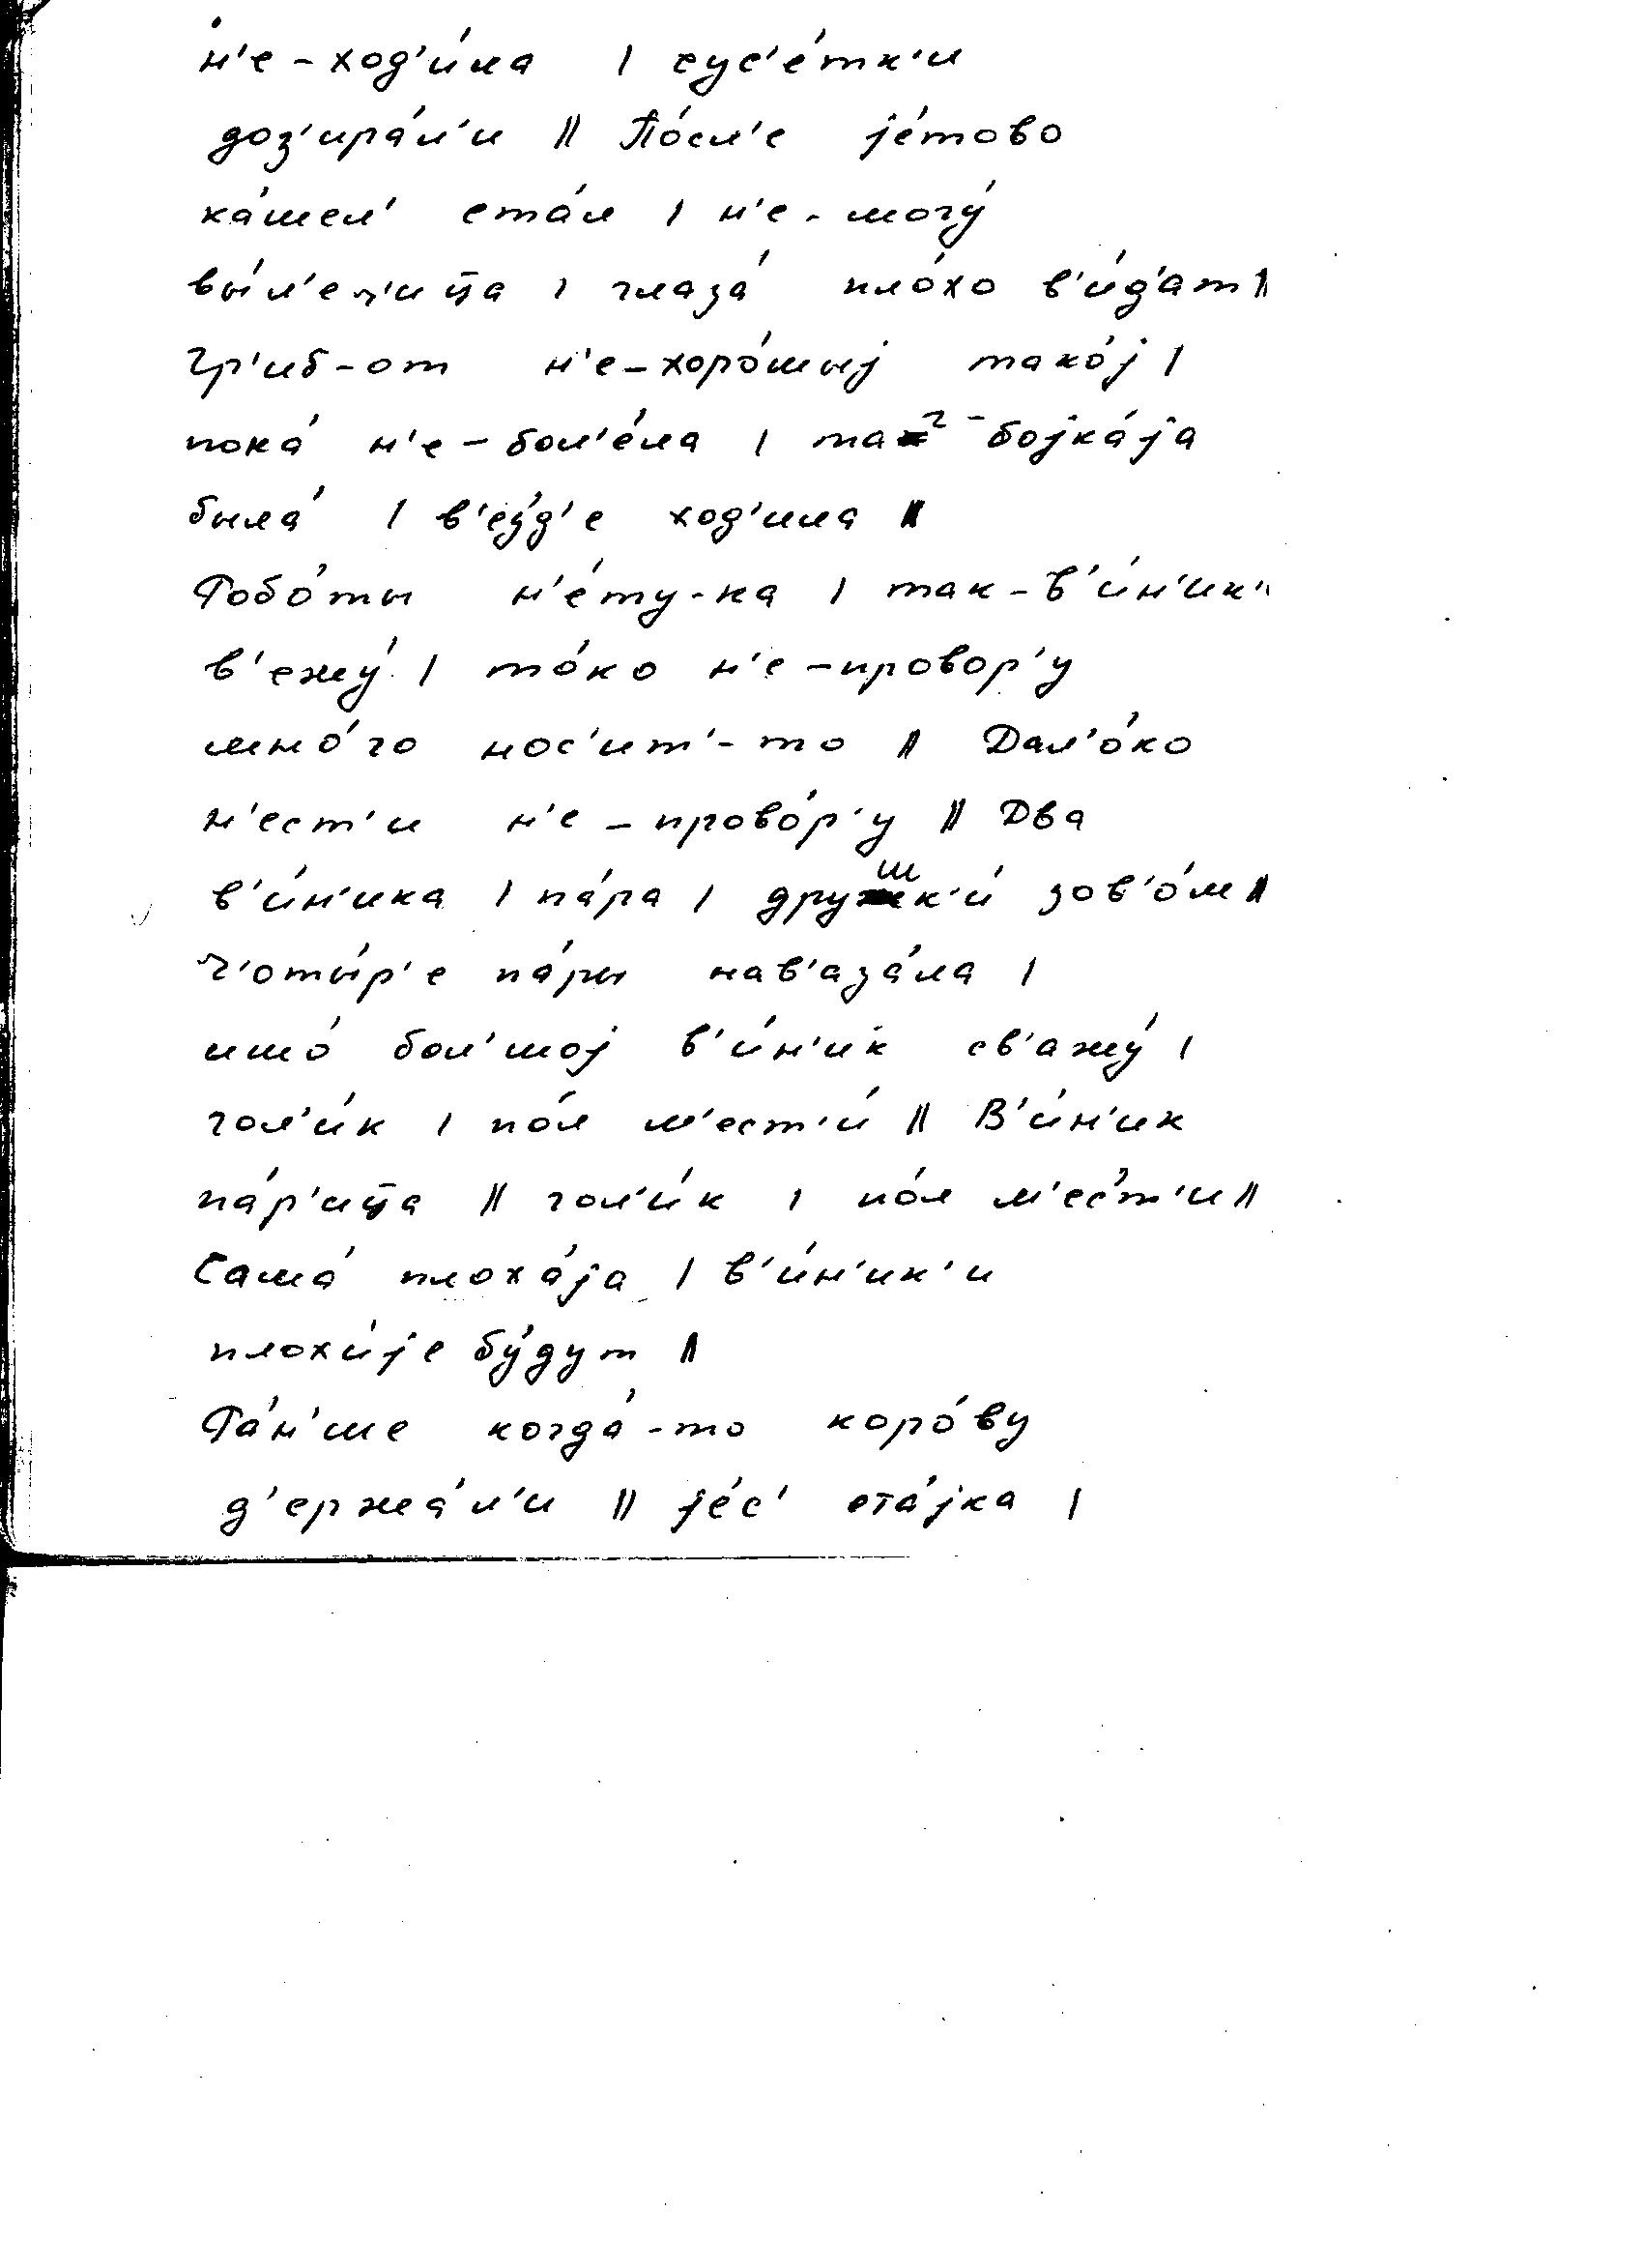 н'е-ход'и́ла | сус'е́тк'и
доз'ира́л'и || По́сл'е је́тово
ка́шел' ста́л | н'е-могу́
вы́л'еч'ица | глаза́ пло́хо в'и́д'ат ||
Гр'иб-от н'е-хоро́шыј тако́ј |
пока́ н'е-бол'е́ла | таг-бојка́ја
была́ | в'ез'д'е ход'ила ||
Робо́ты н'е́ту-ка | так-в'и́н'ик'и
в'ежу́ | то́ко н'е-провор'у
мно́го нос'ит'-то || Дал'о́ко
н'ест'и н'е-прово́р'у || Два
в'и́н'ика | па́ра | друшк'и́ зов'о́м ||
Ч'оты́р'е па́ры нав'аза́ла |
ишо́ бол'шој в'и́н'ик св'ажу́ |
гол'и́к | по́л м'ест'и́ || В'и́н'ик
па́р'ица || гол'и́к | по́л м'ес'т'и ||
Сама́ плоха́ја | в'и́н'ик'и
плохи́је бу́дут ||
Ра́н'ше когда́-то коро́ву
д'ержа́л'и || је́с' ста́јка |